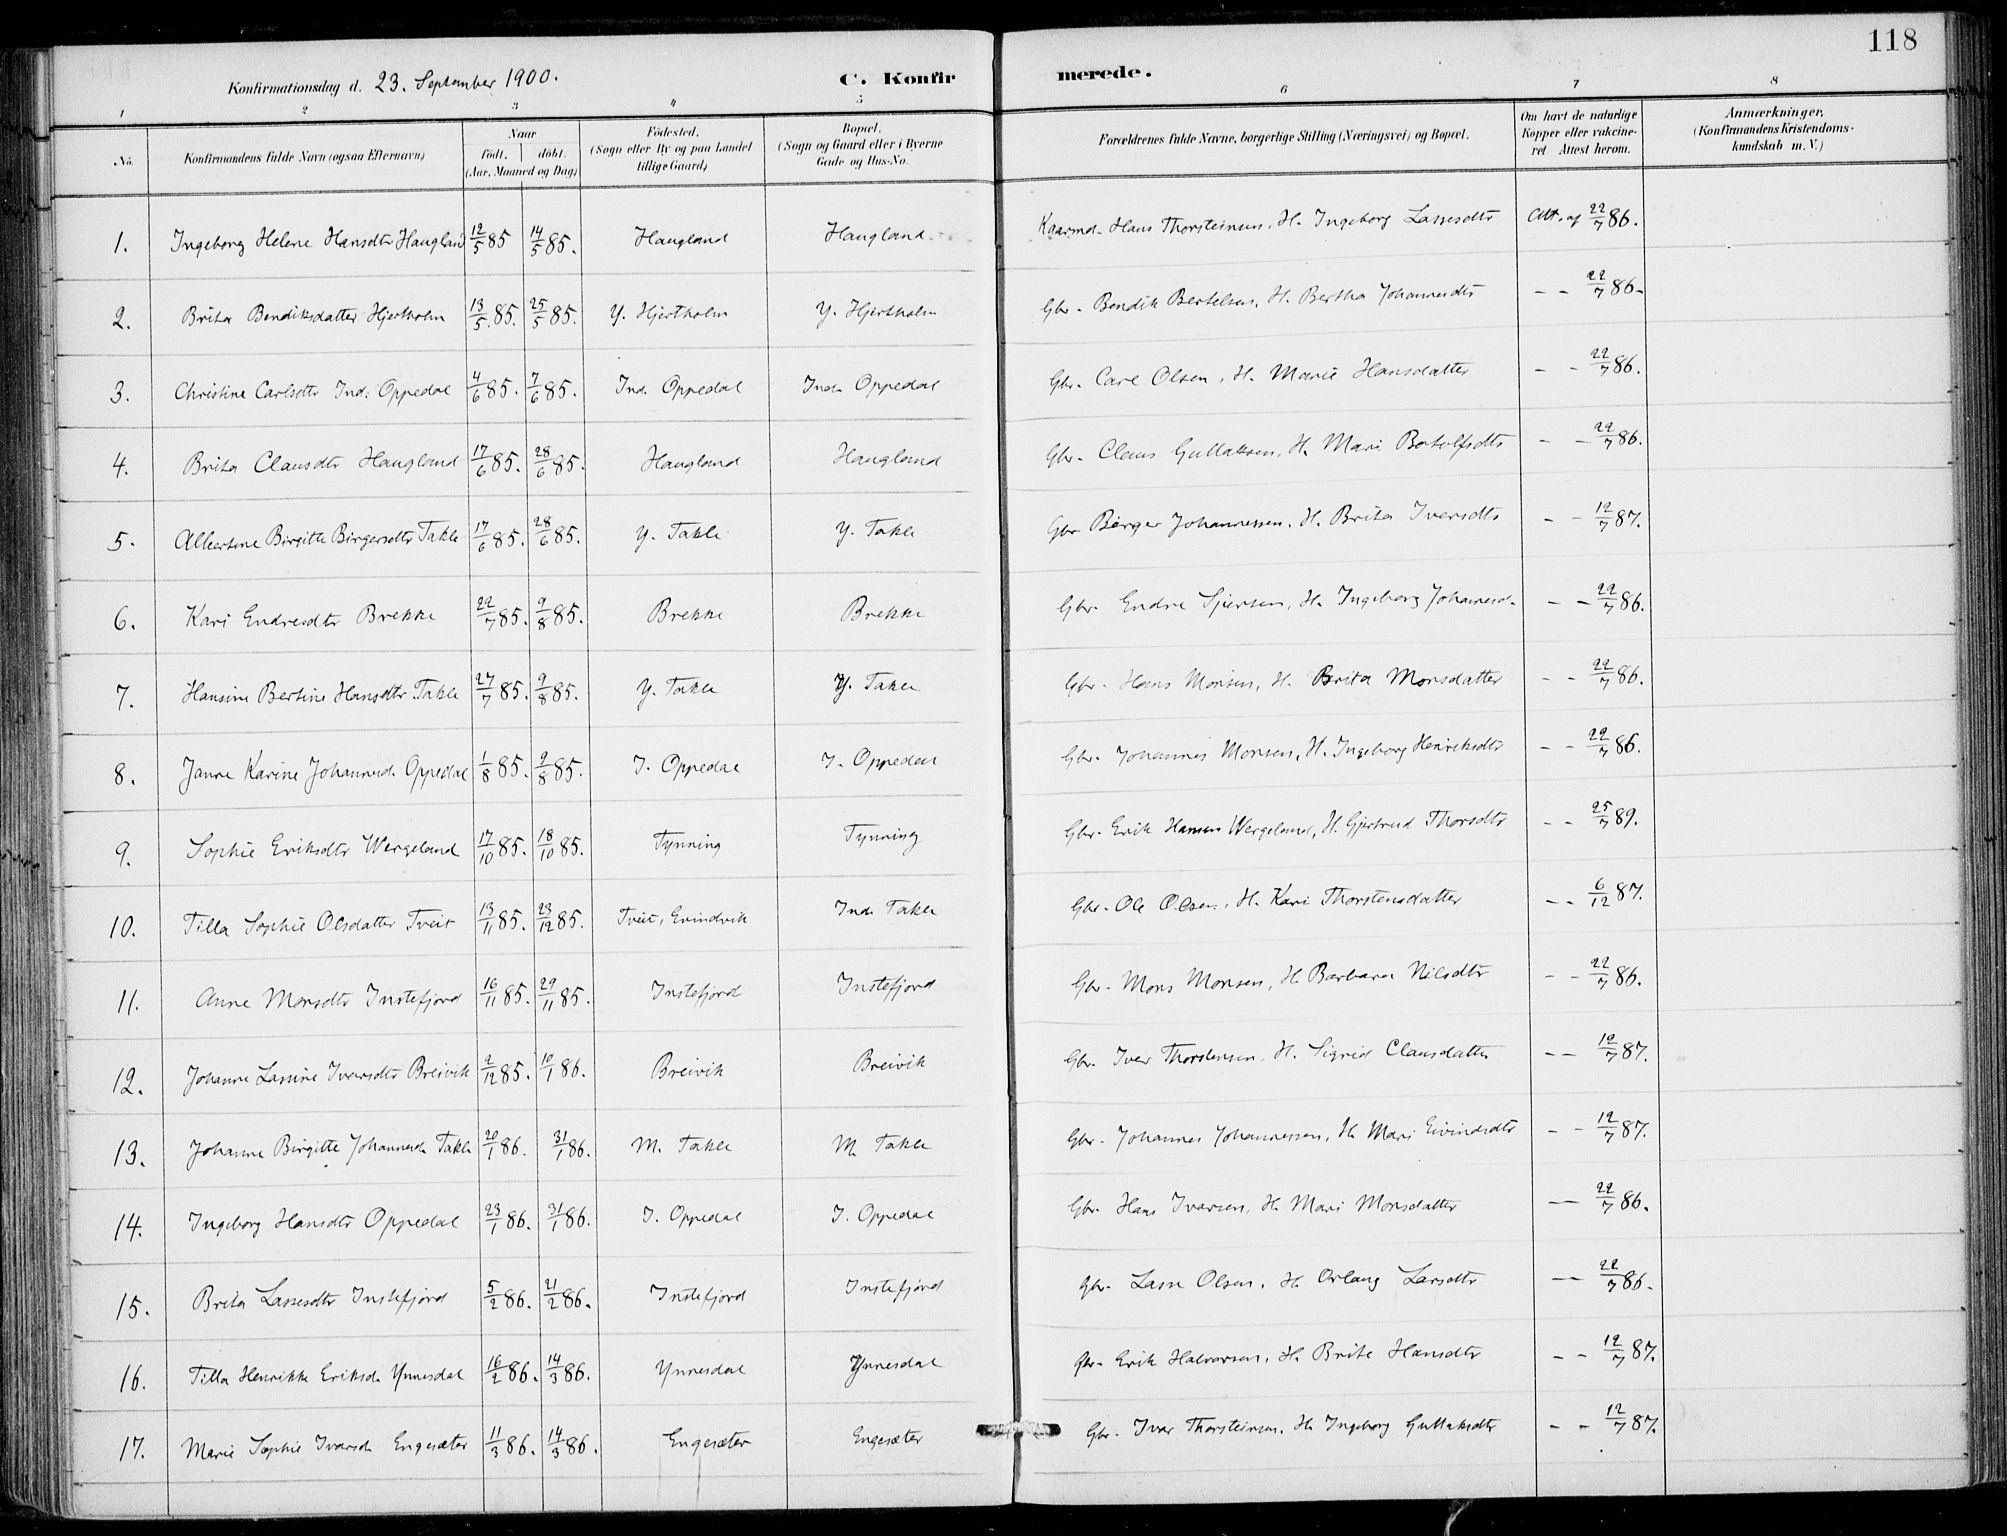 118
Konfirmationsdag d. 23. September 1900.
C. Konfirmerede.
1 2 3 4 5 6 7 8
No. | Konfirmandens fulde Navn (ogsaa Efternavn) | Naar födt. döbt. (Aar, Maaned og Dag) | Födested. (Sogn eller By og paa Landet tillige Gaard) | Bopæl. (Sogn og Gaard eller i Byerne Gade og Hus-No. | Forældrenes fulde Navne, borgerlige Stilling (Næringsvei) og Bopæl. | Om havt de naturlige Kopper eller vakcineret. Attest herom. | Anmærkninger. (Konfirmandens Kristendomskundskab m. V.)
1. Ingeborg Helene Hansdtr Haugland 12/5 85 14/5 85. Haugland Haugland Kaarmd. Hans Thorsteinsen, H. Ingeborg Lassesdtr Att. af 22/7 86.
2. Brita Bendiksdatter Hjertholm 13/5 85. 25/5 85. Y. Hjertholm Y. Hjertholm Gbr. Bendik Bertelsen, H. Bertha Johannesdtr - - 22/7 86.
3. Christine Carlsdtr Ind. Oppedal 4/6 85. 7/6 85. Ind. Oppedal Ind. Oppedal Gbr. Carl Olsen, H. Marie Hansdatter - - 22/7 86.
4. Brita Clausdtr Haugland 17/6 85. 28/6 85. Haugland Haugland Gbr. Claus Guttaksen, H. Mari Botolfsdtr - - 22/7 86.
5. Albertine Birgitte Birgersdtr Takle 17/6 85. 28/6 85. Y. Takle Y. Takle Gbr Børger Johannessen, H. Brita Iversdtr - - 12/7 87.
6. Kari Endresdtr Brekke 22/7 85. 9/8 85. Brekke Brekke Gbr. Endre Sjursen, H. Ingeborg Johannesd. - - 22/7 86.
7. Hansine Bertine Hansdtr Takle 27/7 85. 9/8 85. Y. Takle Y. Takle Gbr. Hans Monsen, H. Brita Monsdatter - - 22/7 86.
8. Janne Karine Johannesd. Oppedal 1/8 85. 9/8 85. I. Oppedal I. Oppedal Gbr. Johannes Monsen, H. Ingeborg Henriksdtr - - 22/7 86.
9. Sophie Eriksdtr Wergeland 17/10 85. 18/10 85. Tynning Tynning Gbr. Erik Hansen Wergeland, H. Gjertrud Thorsdtr - - 25/7 89.
10. Tilla Sophie Olsdatter Tveit 13/11 85. 23/12 85. Tveit, Evindvik Ind. Takle Gbr. Ole Olsen, H. Kari Thorstensdatter - - 6/12 87.
11. Anne Monsdtr Instefjord 16/11 85. 29/11 85. Instefjord Instefjord Gbr. Mons Monsen, H. Barbara Nilsdtr - - 22/7 86.
12. Johanne Lassine Ivarsdtr Breivik 2/12 85. 10/1 86. Breivik Breivik Gbr. Iver Thorstensen, H. Sigrid Clausdatter - - 12/7 87.
13. Johanne Birgitte Johannesd. Takle 20/1 86. 31/1 86. M. Takle M. Takle Gbr. Johannes Johannessen, H. Mari Eivindsdtr - - 12/7 87.
14. Ingeborg Hansdtr Oppedal 23/1 86. 31/1 86. I. Oppedal I. Oppedal Gbr. Hans Ivarsen, H. Mari Monsdatter - - 22/7 86.
15. Brita Lassesdtr Instefjord 5/2 86. 21/2 86. Instefjord Instefjord Gbr. Lasse Olsen, H. Orlaug Larsdtr - - 22/7 86.
16. Tilla Henrikke Eriksd. Ynnesdal 16/2 86. 14/3 86. Ynnesdal Ynnesdal Gbr. Erik Halvorsen, H. Brite Hansdtr - - 12/7 87.
17. Marie Sophie Ivarsd. Engesæter 11/3 86. 14/3 86. Engesæter Engesæter Gbr. Ivar Thorsteinsen, H. Ingeborg Guttaksdtr - - 12/7 87.